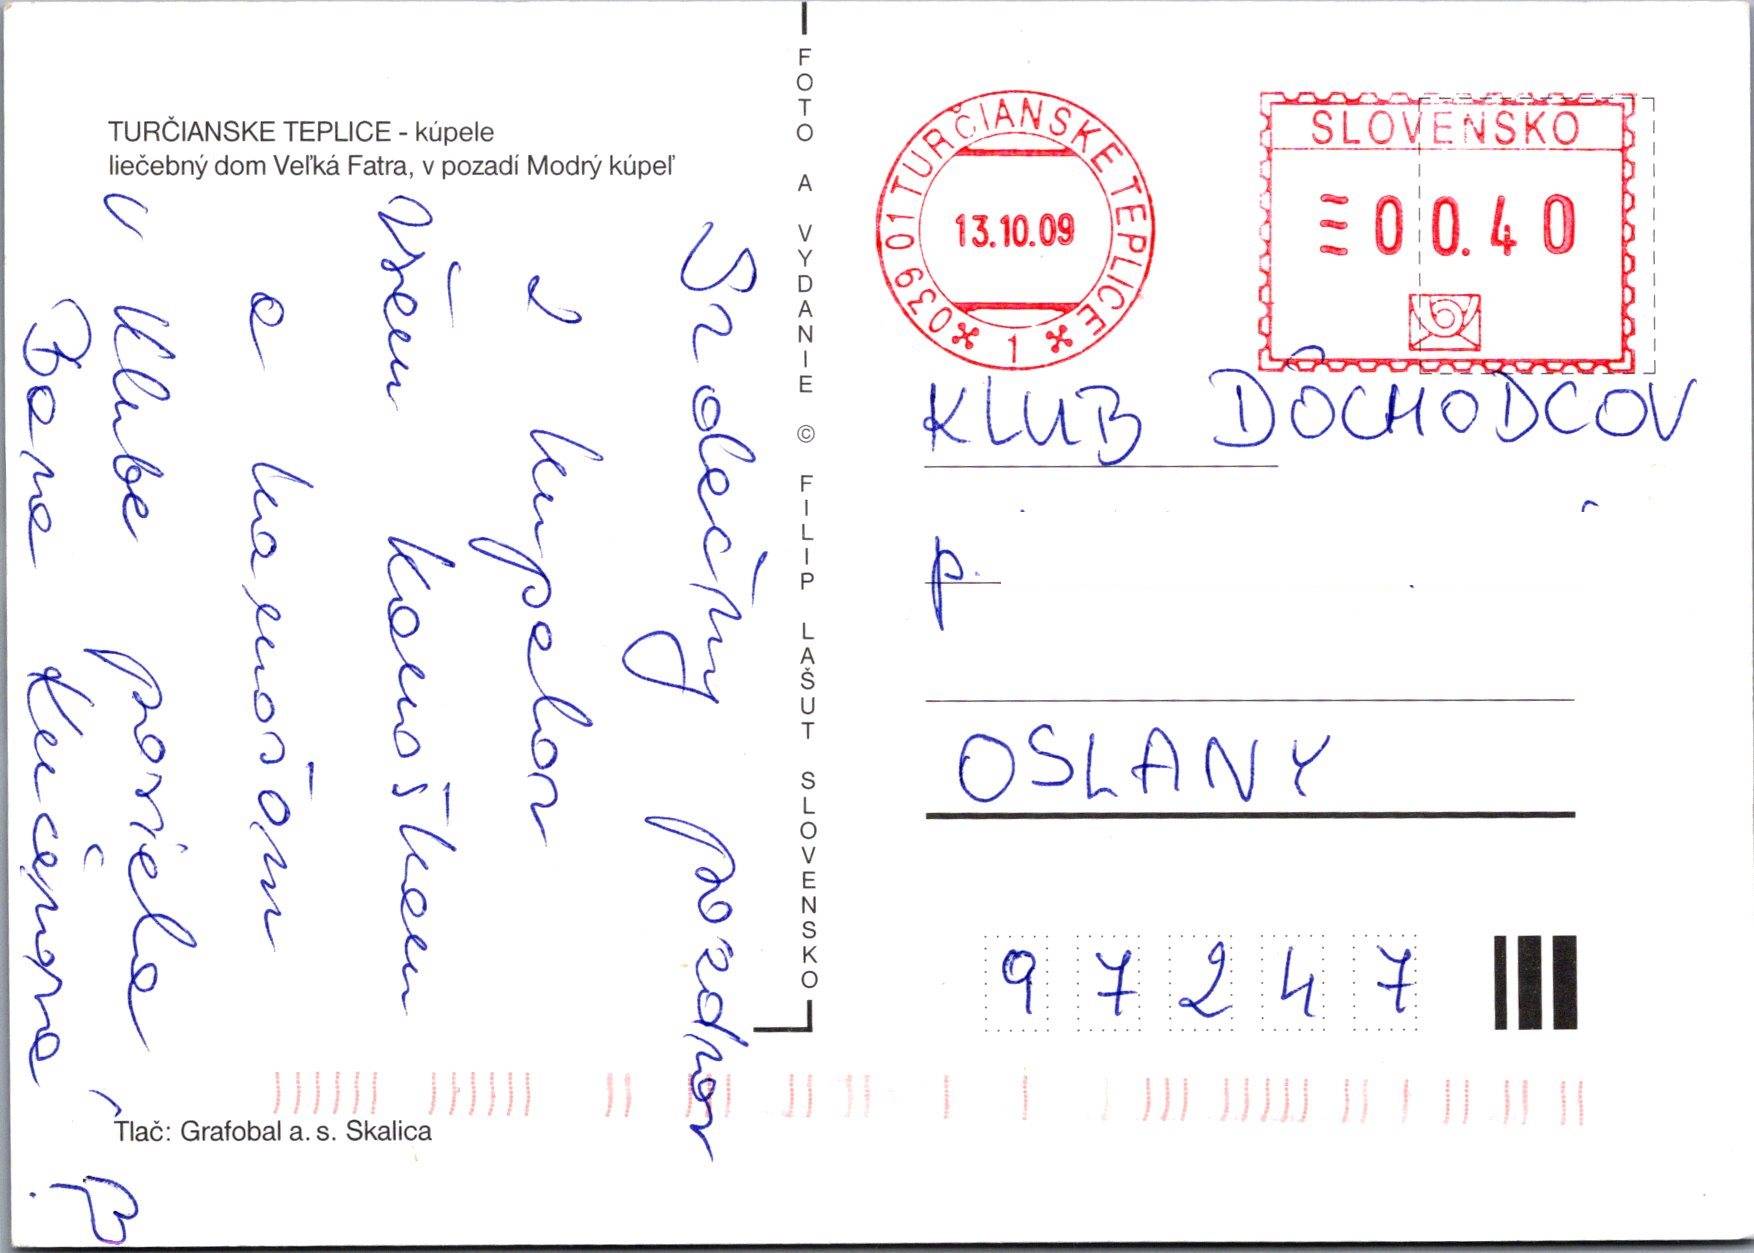 TURČIANSKE TEPLICE - kúpele
liečebný dom Veľká Fatra, v pozadí Modrý kúpeľ
Srdečný pozdrav
z kúpelov
všem kamoškam
a kamošom
v klube posiela
Tlač: Grafobal a. s. Skalica
FOTO A VYDANIE © FILIP LAŠUT SLOVENSKO
039 01 TURČIANSKE TEPLICE
13.10.09
1
SLOVENSKO
00.40
KLUB DÔCHODCOV
p.
OSLANY
97247